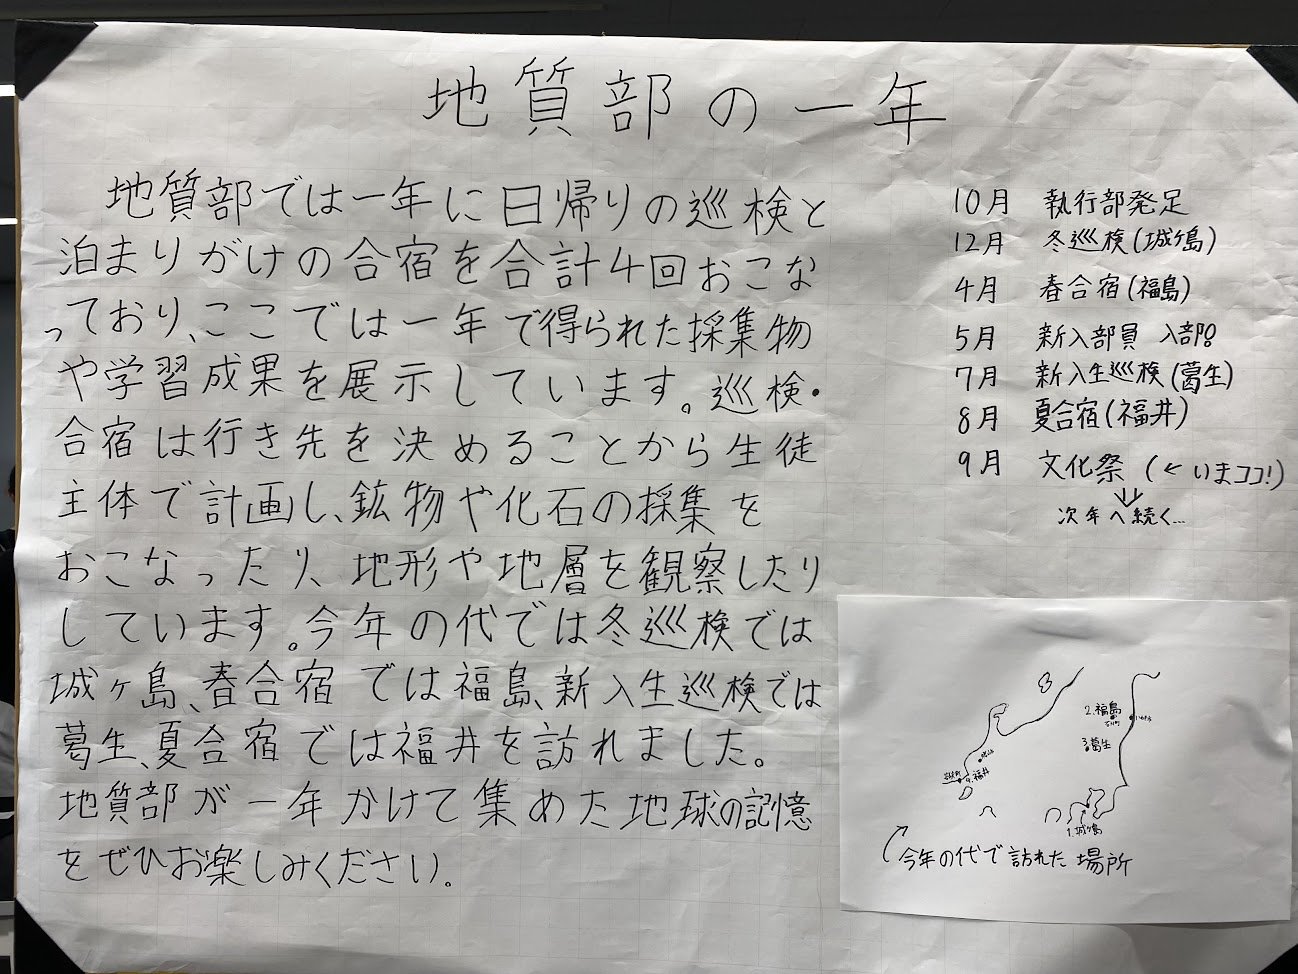 地質部の一年
地質部では一年に日帰りの巡検と
泊まりがけの合宿を合計4回おこな
っており、ここでは一年で得られた採集物
や学習成果を展示しています。巡検・
合宿は行き先を決めることから生徒
主体で計画し、鉱物や化石の採集を
おこなったり、地形や地層を観察したり
しています。今年の代では冬巡検では
城ヶ島、春合宿では福島、新入生巡検では
葛生、夏合宿では福井を訪れました。
地質部が一年かけて集めた地球の記憶
をぜひお楽しみください。
10月 執行部発足
12月 冬巡検(城ヶ島)
4月 春合宿(福島)
5月 新入部員 入部!!
7月 新入生巡検(葛生)
8月 夏合宿(福井)
9月 文化祭 (←いまココ!)
次年へ続く...
2.福島
石川町
いわき市
3.葛生
4.福井
1.城ヶ島
今年の代で訪れた場所